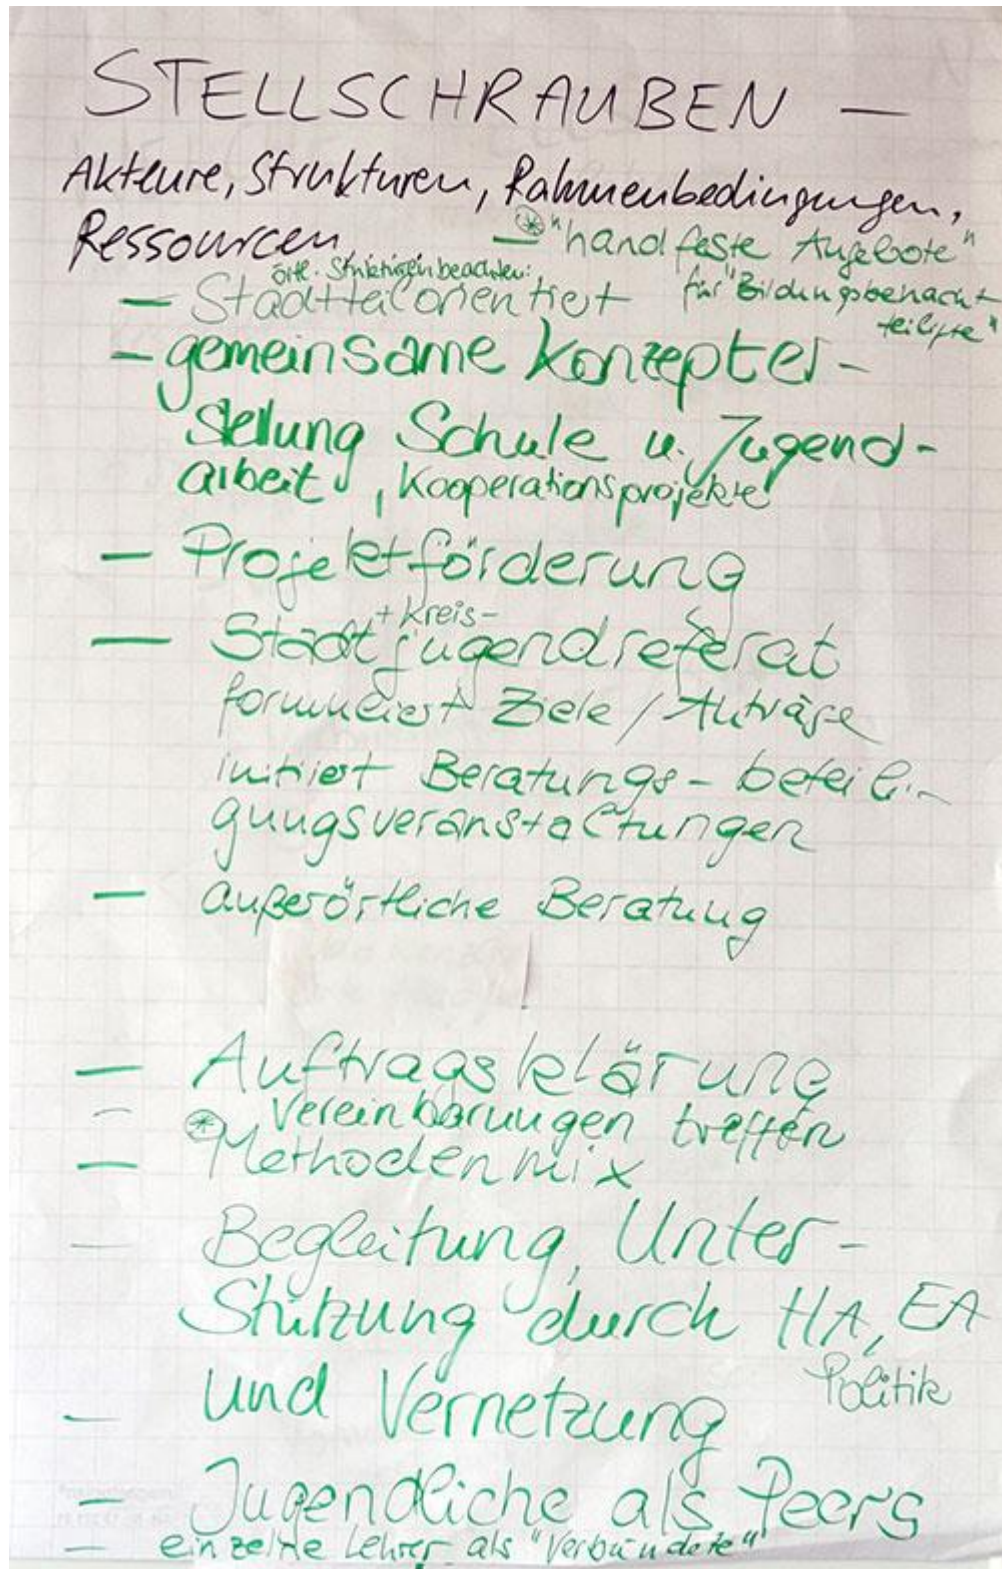 STELLSCHRAUBEN –
Akteure, Strukturen, Rahmenbedingungen,
Ressourcen
– ⊛ "handfeste Angebote"
für "Bildungsbenach-
teiligte"
örtl. Strukturen beachten:
– Stadtteilorientiert
– gemeinsame Konzepter-
stellung Schule u. Jugend-
arbeit, Kooperationsprojekte
– Projektförderung
+ Kreis-
– Stadtjugendreferat
formuliert Ziele / Aufträge
initiiert Beratungs- beteili-
gungsveranstaltungen
– außerörtliche Beratung
– Auftragsklärung
– Vereinbarungen treffen
– ⊛ Methodenmix
– Begleitung, Unter-
stützung durch HA, EA
Politik
– und Vernetzung
– Jugendliche als Peers
– einzelne Lehrer als "Verbündete"